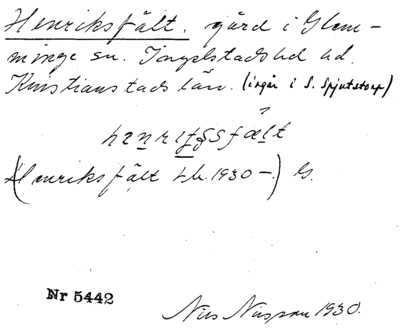 Henriksfält. gård i Glem-
minge sn. Ingelstads hd
Kristianstads län. (ingår i S. Spjutstorp)
(Henriksfält Lb. 1930 –) G.
Nr 5442
Nils Nilsson 1930.